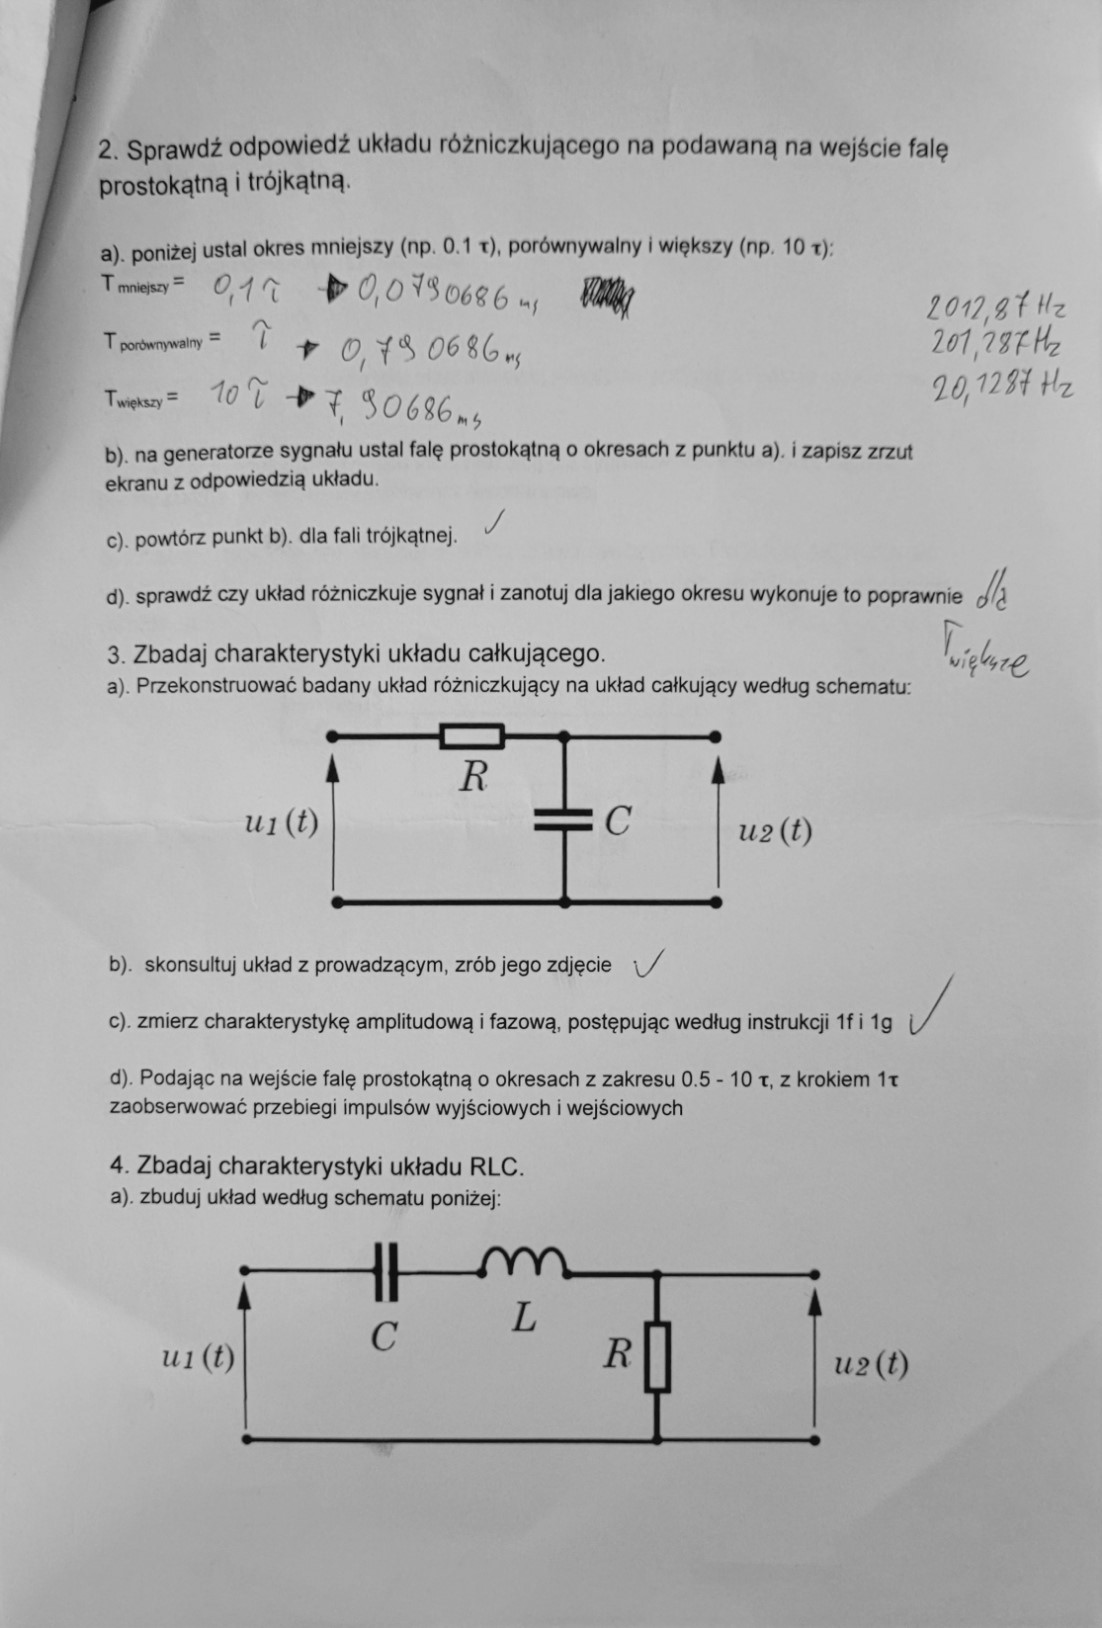 2. Sprawdź odpowiedź układu różniczkującego na podawaną na wejście falę
prostokątną i trójkątną.
a). poniżej ustal okres mniejszy (np. 0.1 τ), porównywalny i większy (np. 10 τ):
T mniejszy = 0,1 τ → 0,0790686 ms
2012,87 Hz
T porównywalny = τ → 0,790686 ms
201,287 Hz
T większy = 10 τ → 7,90686 ms
20,1287 Hz
b). na generatorze sygnału ustal falę prostokątną o okresach z punktu a). i zapisz zrzut
ekranu z odpowiedzią układu.
c). powtórz punkt b). dla fali trójkątnej. ✓
d). sprawdź czy układ różniczkuje sygnał i zanotuj dla jakiego okresu wykonuje to poprawnie dla
T większe
3. Zbadaj charakterystyki układu całkującego.
a). Przekonstruować badany układ różniczkujący na układ całkujący według schematu:
R
u1 (t)
C
u2 (t)
b). skonsultuj układ z prowadzącym, zrób jego zdjęcie ✓
c). zmierz charakterystykę amplitudową i fazową, postępując według instrukcji 1f i 1g ✓
d). Podając na wejście falę prostokątną o okresach z zakresu 0.5 - 10 τ, z krokiem 1τ
zaobserwować przebiegi impulsów wyjściowych i wejściowych
4. Zbadaj charakterystyki układu RLC.
a). zbuduj układ według schematu poniżej:
C
L
u1 (t)
R
u2 (t)